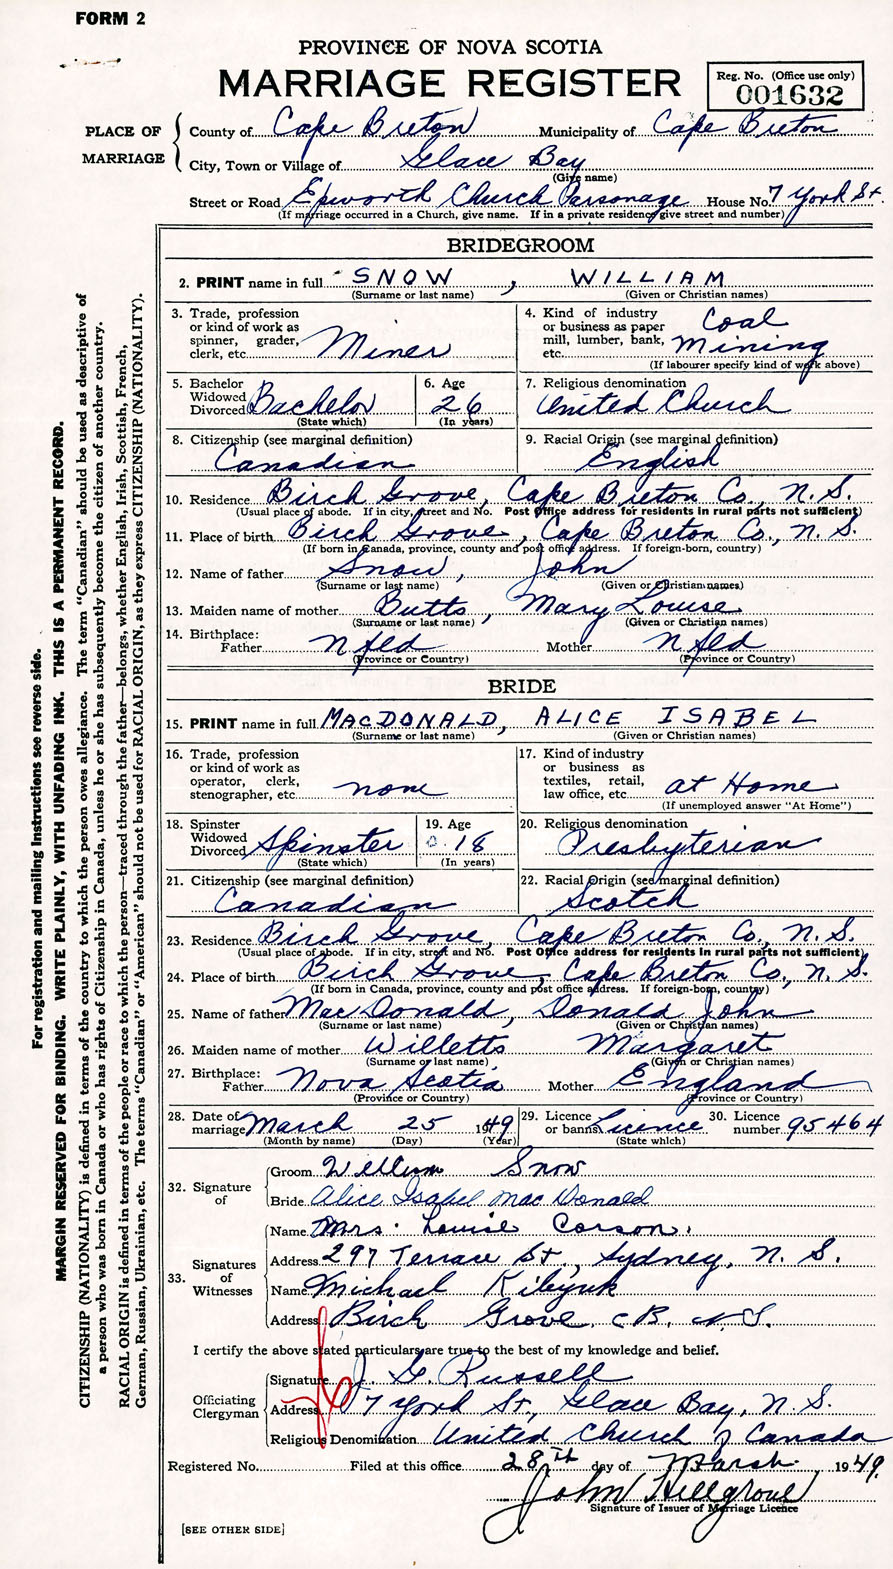 FORM 2
PROVINCE OF NOVA SCOTIA
MARRIAGE REGISTER
Reg. No. (Office use only)
001632
PLACE OF MARRIAGE
County of Cape Breton Municipality of Cape Breton
City, Town or Village of Glace Bay
(Give name)
Street or Road Epworth Church Parsonage House No. 7 York St.
(If marriage occurred in a Church, give name. If in a private residence give street and number)
BRIDEGROOM
2. PRINT name in full SNOW, WILLIAM
(Surname or last name) (Given or Christian names)
3. Trade, profession or kind of work as spinner, grader, clerk, etc. Miner
4. Kind of industry or business as paper mill, lumber, bank, etc. Coal Mining
(If labourer specify kind of work above)
5. Bachelor Widowed Divorced Bachelor
(State which)
6. Age 26
(In years)
7. Religious denomination United Church
8. Citizenship (see marginal definition) Canadian
9. Racial Origin (see marginal definition) English
10. Residence Birch Grove, Cape Breton Co., N.S.
(Usual place of abode. If in city, street and No. Post Office address for residents in rural parts not sufficient)
11. Place of birth Birch Grove, Cape Breton Co., N.S.
(If born in Canada, province, county and post office address. If foreign-born, country)
12. Name of father Snow, John
(Surname or last name) (Given or Christian names)
13. Maiden name of mother Butts, Mary Louise
(Surname or last name) (Given or Christian names)
14. Birthplace:
Father Nfld Mother Nfld
(Province or Country) (Province or Country)
BRIDE
15. PRINT name in full MACDONALD, ALICE ISABEL
(Surname or last name) (Given or Christian names)
16. Trade, profession or kind of work as operator, clerk, stenographer, etc. none
17. Kind of industry or business as textiles, retail, law office, etc. at Home
(If unemployed answer "At Home")
18. Spinster Widowed Divorced Spinster
(State which)
19. Age 18
(In years)
20. Religious denomination Presbyterian
21. Citizenship (see marginal definition) Canadian
22. Racial Origin (see marginal definition) Scotch
23. Residence Birch Grove, Cape Breton Co., N.S.
(Usual place of abode. If in city, street and No. Post Office address for residents in rural parts not sufficient)
24. Place of birth Birch Grove, Cape Breton Co., N.S.
(If born in Canada, province, county and post office address. If foreign-born, country)
25. Name of father MacDonald, Donald John
(Surname or last name) (Given or Christian names)
26. Maiden name of mother Willetts Margaret
(Surname or last name) (Given or Christian names)
27. Birthplace:
Father Nova Scotia Mother England
(Province or Country) (Province or Country)
28. Date of marriage March 25 1949
(Month by name) (Day) (Year)
29. Licence or banns Licence
(State which)
30. Licence number 95464
32. Signature of
Groom William Snow
Bride Alice Isabel Mac Donald
33. Signatures of Witnesses
Name Mrs. Louise Corson.
Address 297 Terrace St., Sydney, N.S.
Name Michael Kibyuk
Address Birch Grove, C.B. N.S.
I certify the above stated particulars are true to the best of my knowledge and belief.
Officiating Clergyman
Signature J. G. Russell
Address 7 York St., Glace Bay, N.S.
Religious Denomination United Church of Canada
Registered No. Filed at this office 28th day of March 1949.
John Hillgrove
Signature of Issuer of Marriage Licence
[SEE OTHER SIDE]
For registration and mailing instructions see reverse side.
MARGIN RESERVED FOR BINDING. WRITE PLAINLY, WITH UNFADING INK. THIS IS A PERMANENT RECORD.
CITIZENSHIP (NATIONALITY) is defined in terms of the country to which the person owes allegiance. The term "Canadian" should be used as descriptive of
a person who was born in Canada or who has rights of Citizenship in Canada, unless he or she has subsequently become the citizen of another country.
RACIAL ORIGIN is defined in terms of the people or race to which the person—traced through the father—belongs, whether English, Irish, Scottish, French,
German, Russian, Ukrainian, etc. The terms "Canadian" or "American" should not be used for RACIAL ORIGIN, as they express CITIZENSHIP (NATIONALITY).